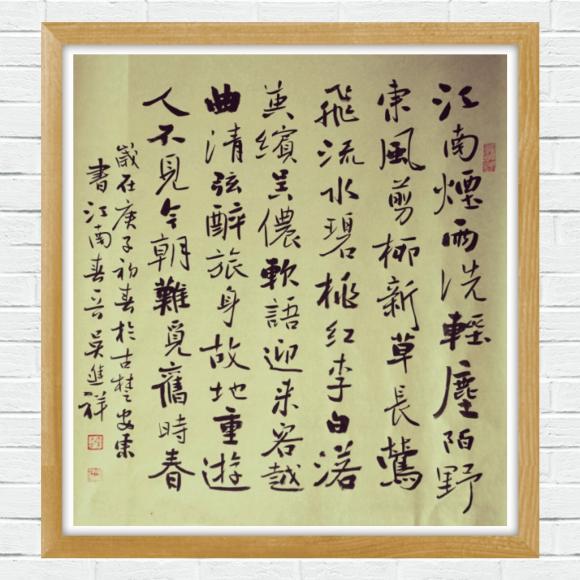 江南煙雨洗輕塵陌野
東風剪柳新草長鶯
飛流水碧桃红李白落
英繽吴儂軟語迎来客越
曲清弦醉旅身故地重遊
人不見今朝難覓舊時春
歲在庚子初春於古楚安東
書江南春吴進祥